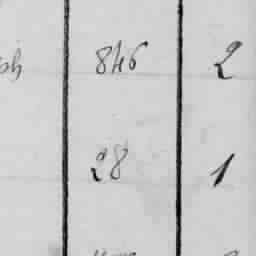 ph 846 2
28 1